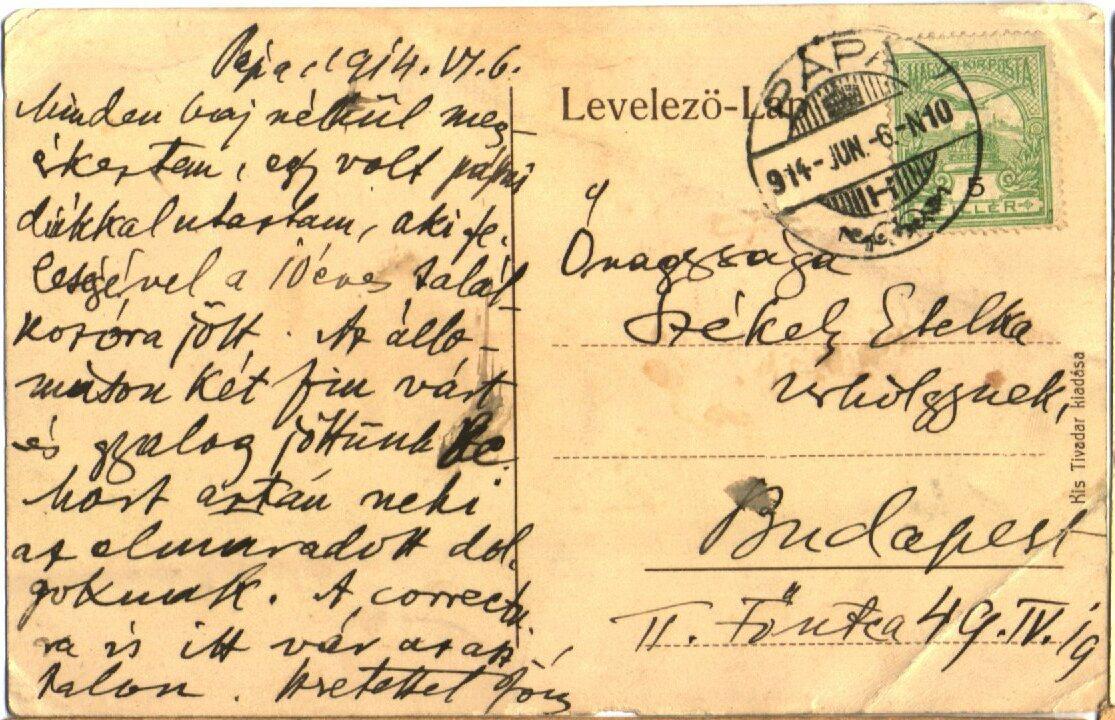 Pápa, 1914. VI. 6.
Minden baj nélkül meg-
érkeztem, egy volt pápai
diákkal utaztam, aki fe-
leségével a 10 éves talál-
kozóra jött. Az állo-
máson két fiu várt
és gyalog jöttünk be
most aztán neki
az elmaradott dol-
goknak. A correctu-
ra is itt vár az asz-
talon. Szeretettel Jön
Levelező-Lap
PÁPA
914-JUN.-6.-N10
MAGYAR KIR. POSTA
5
FILLÉR
Őnagysága
Székely Etelka
urhölgynek,
Budapest
II. Főutca 49. IV. 19
Kis Tivadar kiadása